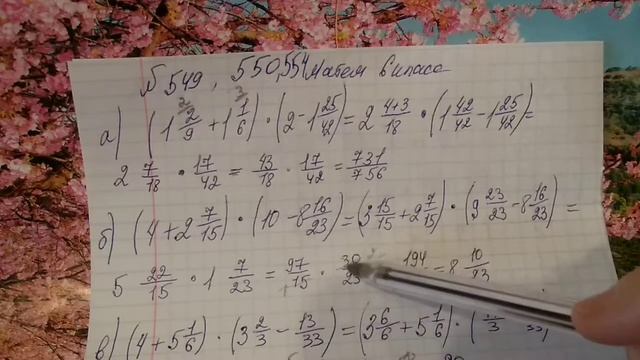 № 549, 550, 551 Матем 6 класс
а) (1 2/9 + 1 1/6) · (2 - 1 25/42) = 2 4+3/18 · (1 42/42 - 1 25/42) =
2 7/18 · 17/42 = 43/18 · 17/42 = 731/756
б) (4 + 2 7/15) · (10 - 8 16/23) = (3 15/15 + 2 7/15) · (9 23/23 - 8 16/23) =
5 22/15 · 1 7/23 = 97/15 · 30/23 194 = 8 10/23
в) (4 + 5 1/6) · (3 2/3 - 13/33) = (3 6/6 + 5 1/6) · (